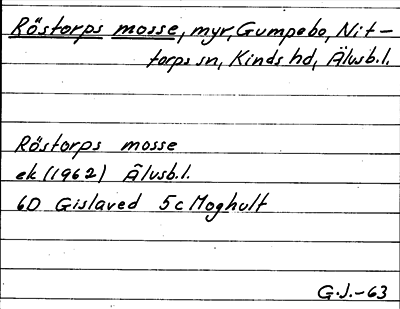 Röstorps mosse, myr, Gumpebo, Nit-
torps sn, Kinds hd, Älvsb.l.
Röstorps mosse
ek (1962) Älvsb.l.
6D Gislaved 5c Moghult
G.J.-63